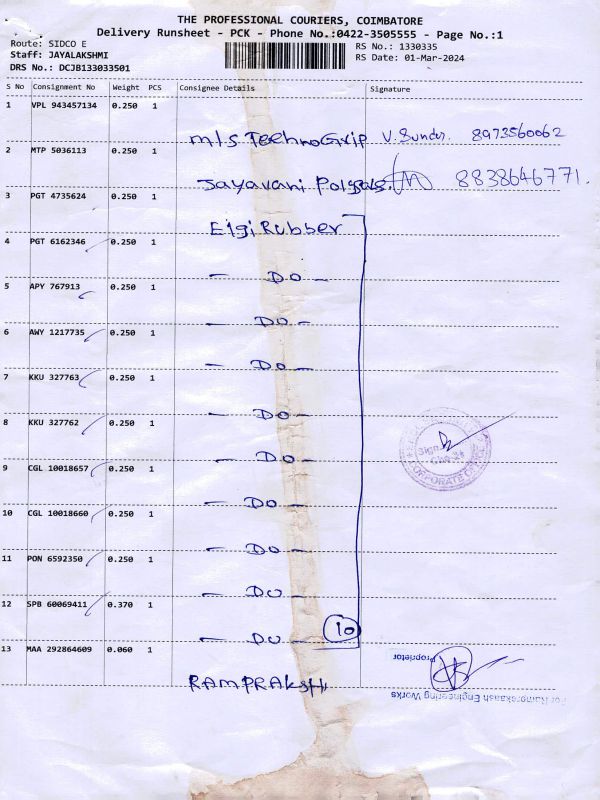 THE PROFESSIONAL COURIERS, COIMBATORE
Delivery Runsheet - PCK - Phone No.:0422-3505555 - Page No.:1
Route: SIDCO E
RS No.: 1330335
Staff: JAYALAKSHMI
RS Date: 01-Mar-2024
DRS No.: DCJB133033501
S No Consignment No Weight PCS Consignee Details Signature
1 VPL 943457134 0.250 1
M/s TechnoGrip V. Sunder. 8973560062
2 MTP 5036113 0.250 1
Jayavani 8838646771.
3 PGT 4735624 0.250 1
Elgi Rubber
4 PGT 6162346 0.250 1
- Do -
5 APY 767913 0.250 1
- Do -
6 AWY 1217735 0.250 1
- Do -
7 KKU 327763 0.250 1
- Do -
8 KKU 327762 0.250 1
- Do -
9 CGL 10018657 0.250 1
- Do -
10 CGL 10018660 0.250 1
- Do -
11 PON 6592350 0.250 1
- Do -
12 SPB 60069411 0.370 1
- Do - 10
13 MAA 292864609 0.060 1
RAMPRAKSH
CORPORATE OFFICE
For Ramprakaash Engineering Works
Proprietor